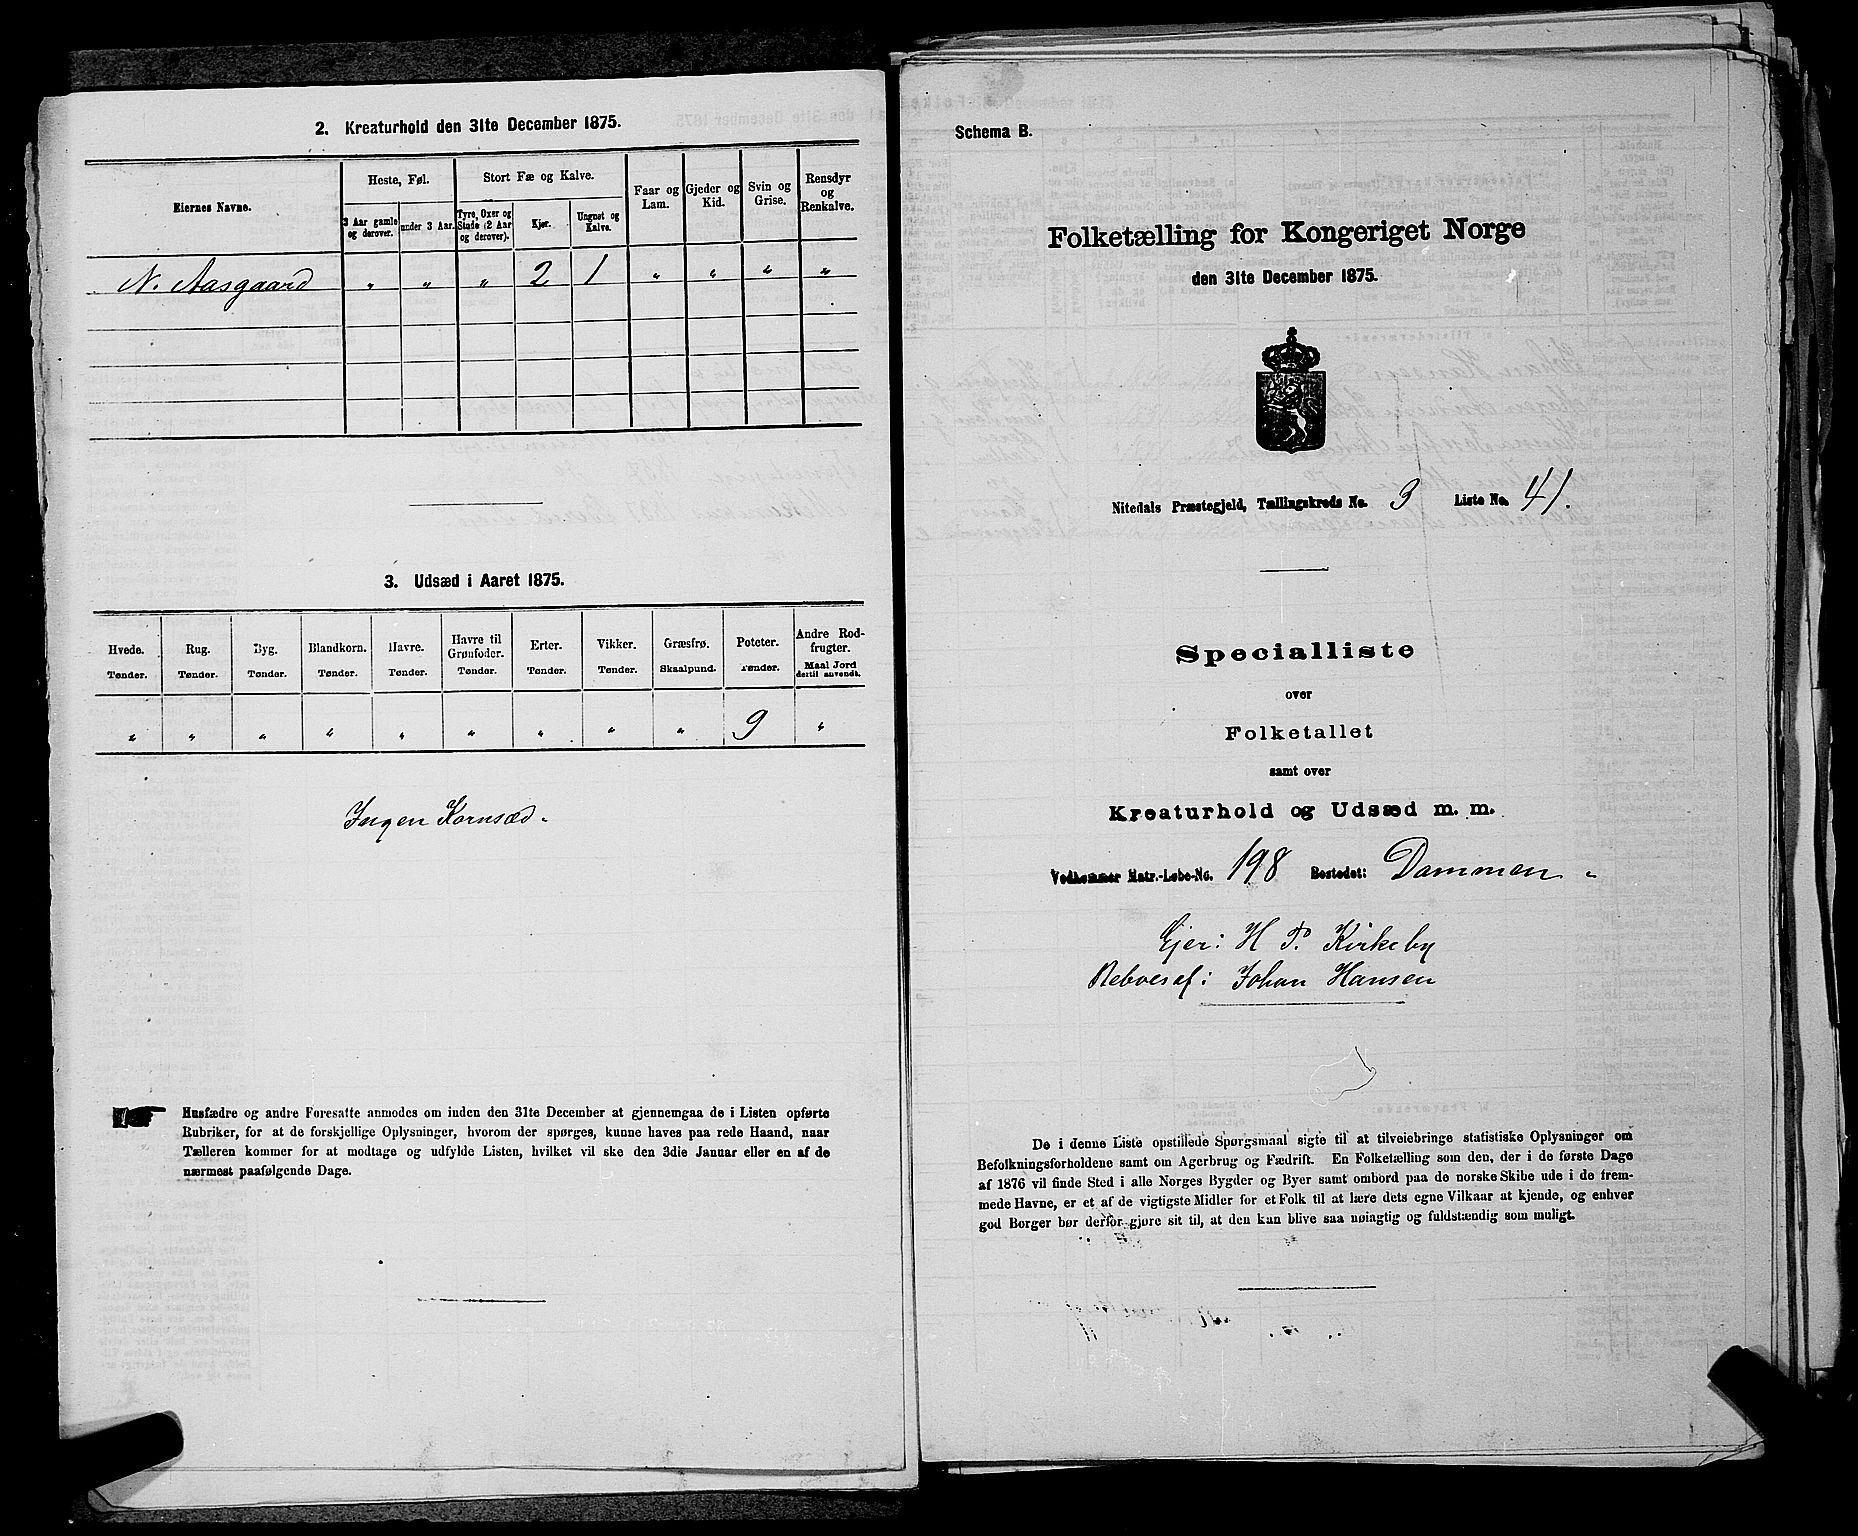 2. Kreaturhold den 31te December 1875.
Eiernes Navne.
Heste, Føl.
Stort Fæ og Kalve.
Faar og Lam.
Gjeder og Kid.
Svin og Grise.
Rensdyr og Renkalve.
3 Aar gamle og derover.
under 3 Aar.
Tyre, Oxer og Stude (2 Aar og derover).
Kjør.
Ungnøt og Kalve.
N. Aasgaard " " " 2 1 " " " "
3. Udsæd i Aaret 1875.
Hvede. Rug. Byg. Blandkorn. Havre. Havre til Grønfoder. Erter. Vikker. Græsfrø. Poteter. Andre Rodfrugter.
Tønder. Tønder. Tønder. Tønder. Tønder. Tønder. Tønder. Tønder. Skaalpund. Tønder. Maal Jord dertil anvendt.
" " " " " " " " " 9 "
Ingen Kornsæd.
Husfædre og andre Foresatte anmodes om inden den 31te December at gjennemgaa de i Listen opførte
Rubriker, for at de forskjellige Oplysninger, hvorom der spørges, kunne haves paa rede Haand, naar
Tælleren kommer for at modtage og udfylde Listen, hvilket vil ske den 3die Januar eller en af de
nærmest paafølgende Dage.
Schema B.
Folketælling for Kongeriget Norge
den 31te December 1875.
Nitedals Præstegjeld, Tællingskreds No. 3 Liste No. 41.
Specialliste
over
Folketallet
samt over
Kreaturhold og Udsæd m. m.
Vedkommer Matr.-Løbe-No. 198 Bostedet: Dammen
Ejer: H P. Kirkeby
Beboes af: Johan Hansen
De i denne Liste opstillede Spørgsmaal sigte til at tilveiebringe statistiske Oplysninger om
Befolkningsforholdene samt om Agerbrug og Fædrift. En Folketælling som den, der i de første Dage
af 1876 vil finde Sted i alle Norges Bygder og Byer samt ombord paa de norske Skibe ude i de frem-
mede Havne, er et af de vigtigste Midler for et Folk til at lære dets egne Vilkaar at kjende, og enhver
god Borger bør derfor gjøre sit til, at den kan blive saa nøiagtig og fuldstændig som muligt.